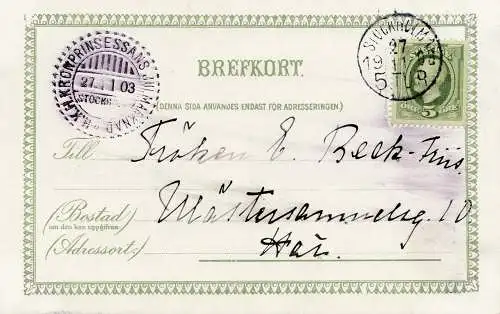 H.K.H. KRONPRINSESSANS JULMARKNAD
27. 1 03
STOCKH
STOCKHOLM
27
11
03
BREFKORT.
5
(DENNA SIDA ANVÄNDES ENDAST FÖR ADRESSERINGEN.)
Till Fröken E. Beck-Friis.
(Bostad)
om den kan uppgifvas
Mästersamuelsg. 10
(Adressort:)
Här.